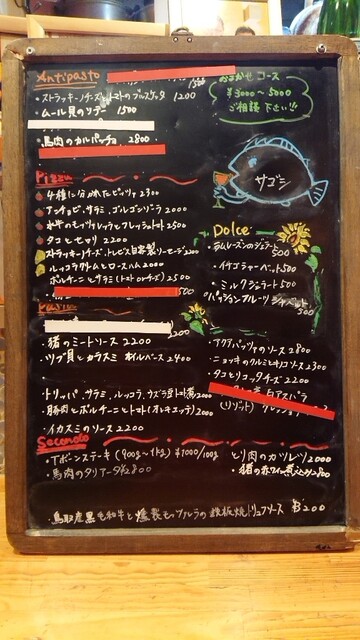 Antipasto
1500
・ストラッキーノチーズとトマトのブルスケッタ 1200
・ムール貝のソテー 1500
・馬肉のカルパッチョ 2800
おまかせ コース
¥3000〜5000
ご相談 下さい!!
サゴシ
Pizza
4種に分かれたピッツァ 2300
アンチョビ、サラミ、ゴルゴンゾーラ 2000
水牛のモッツァレッラとフレッシュトマト 2500
タコとセロリ 2200
ストラッキーノチーズ、トレビス自家製ソーセージ 2200
ルッコラクリームとロースハム 2000
ポルチーニとサラミ(トマト or チーズ) 2500
500
Dolce
・ラムレーズンのジェラート 500
・イチゴシャーベット 500
・ミルクジェラート 500
・パッションフルーツ シャーベット 500
Pasta
200
・猪のミートソース 2200
・ツブ貝とカラスミ オイルベース 2400
・トリッパ、サラミ、ルッコラ、ウズラ豆トマト煮 2000
・豚肉とポルチーニとトマト(オレキエッテ) 2000
・イカスミのソース 2200
・アクアパッツァのソース 2800
・ニョッキのクルミとキノコソース 2300
・タコとリコッタチーズ 2200
白アスパラ
(リゾット)
Secondo
・Tボーンステーキ (900g〜1kg) ¥1000/100g
・馬肉のタリアータ 2800
とり肉のカツレツ 2000
・猪の赤ワイン煮込み 2800
鳥取産黒毛和牛と燻製モッツァレラの鉄板焼トリュフソース ¥3200